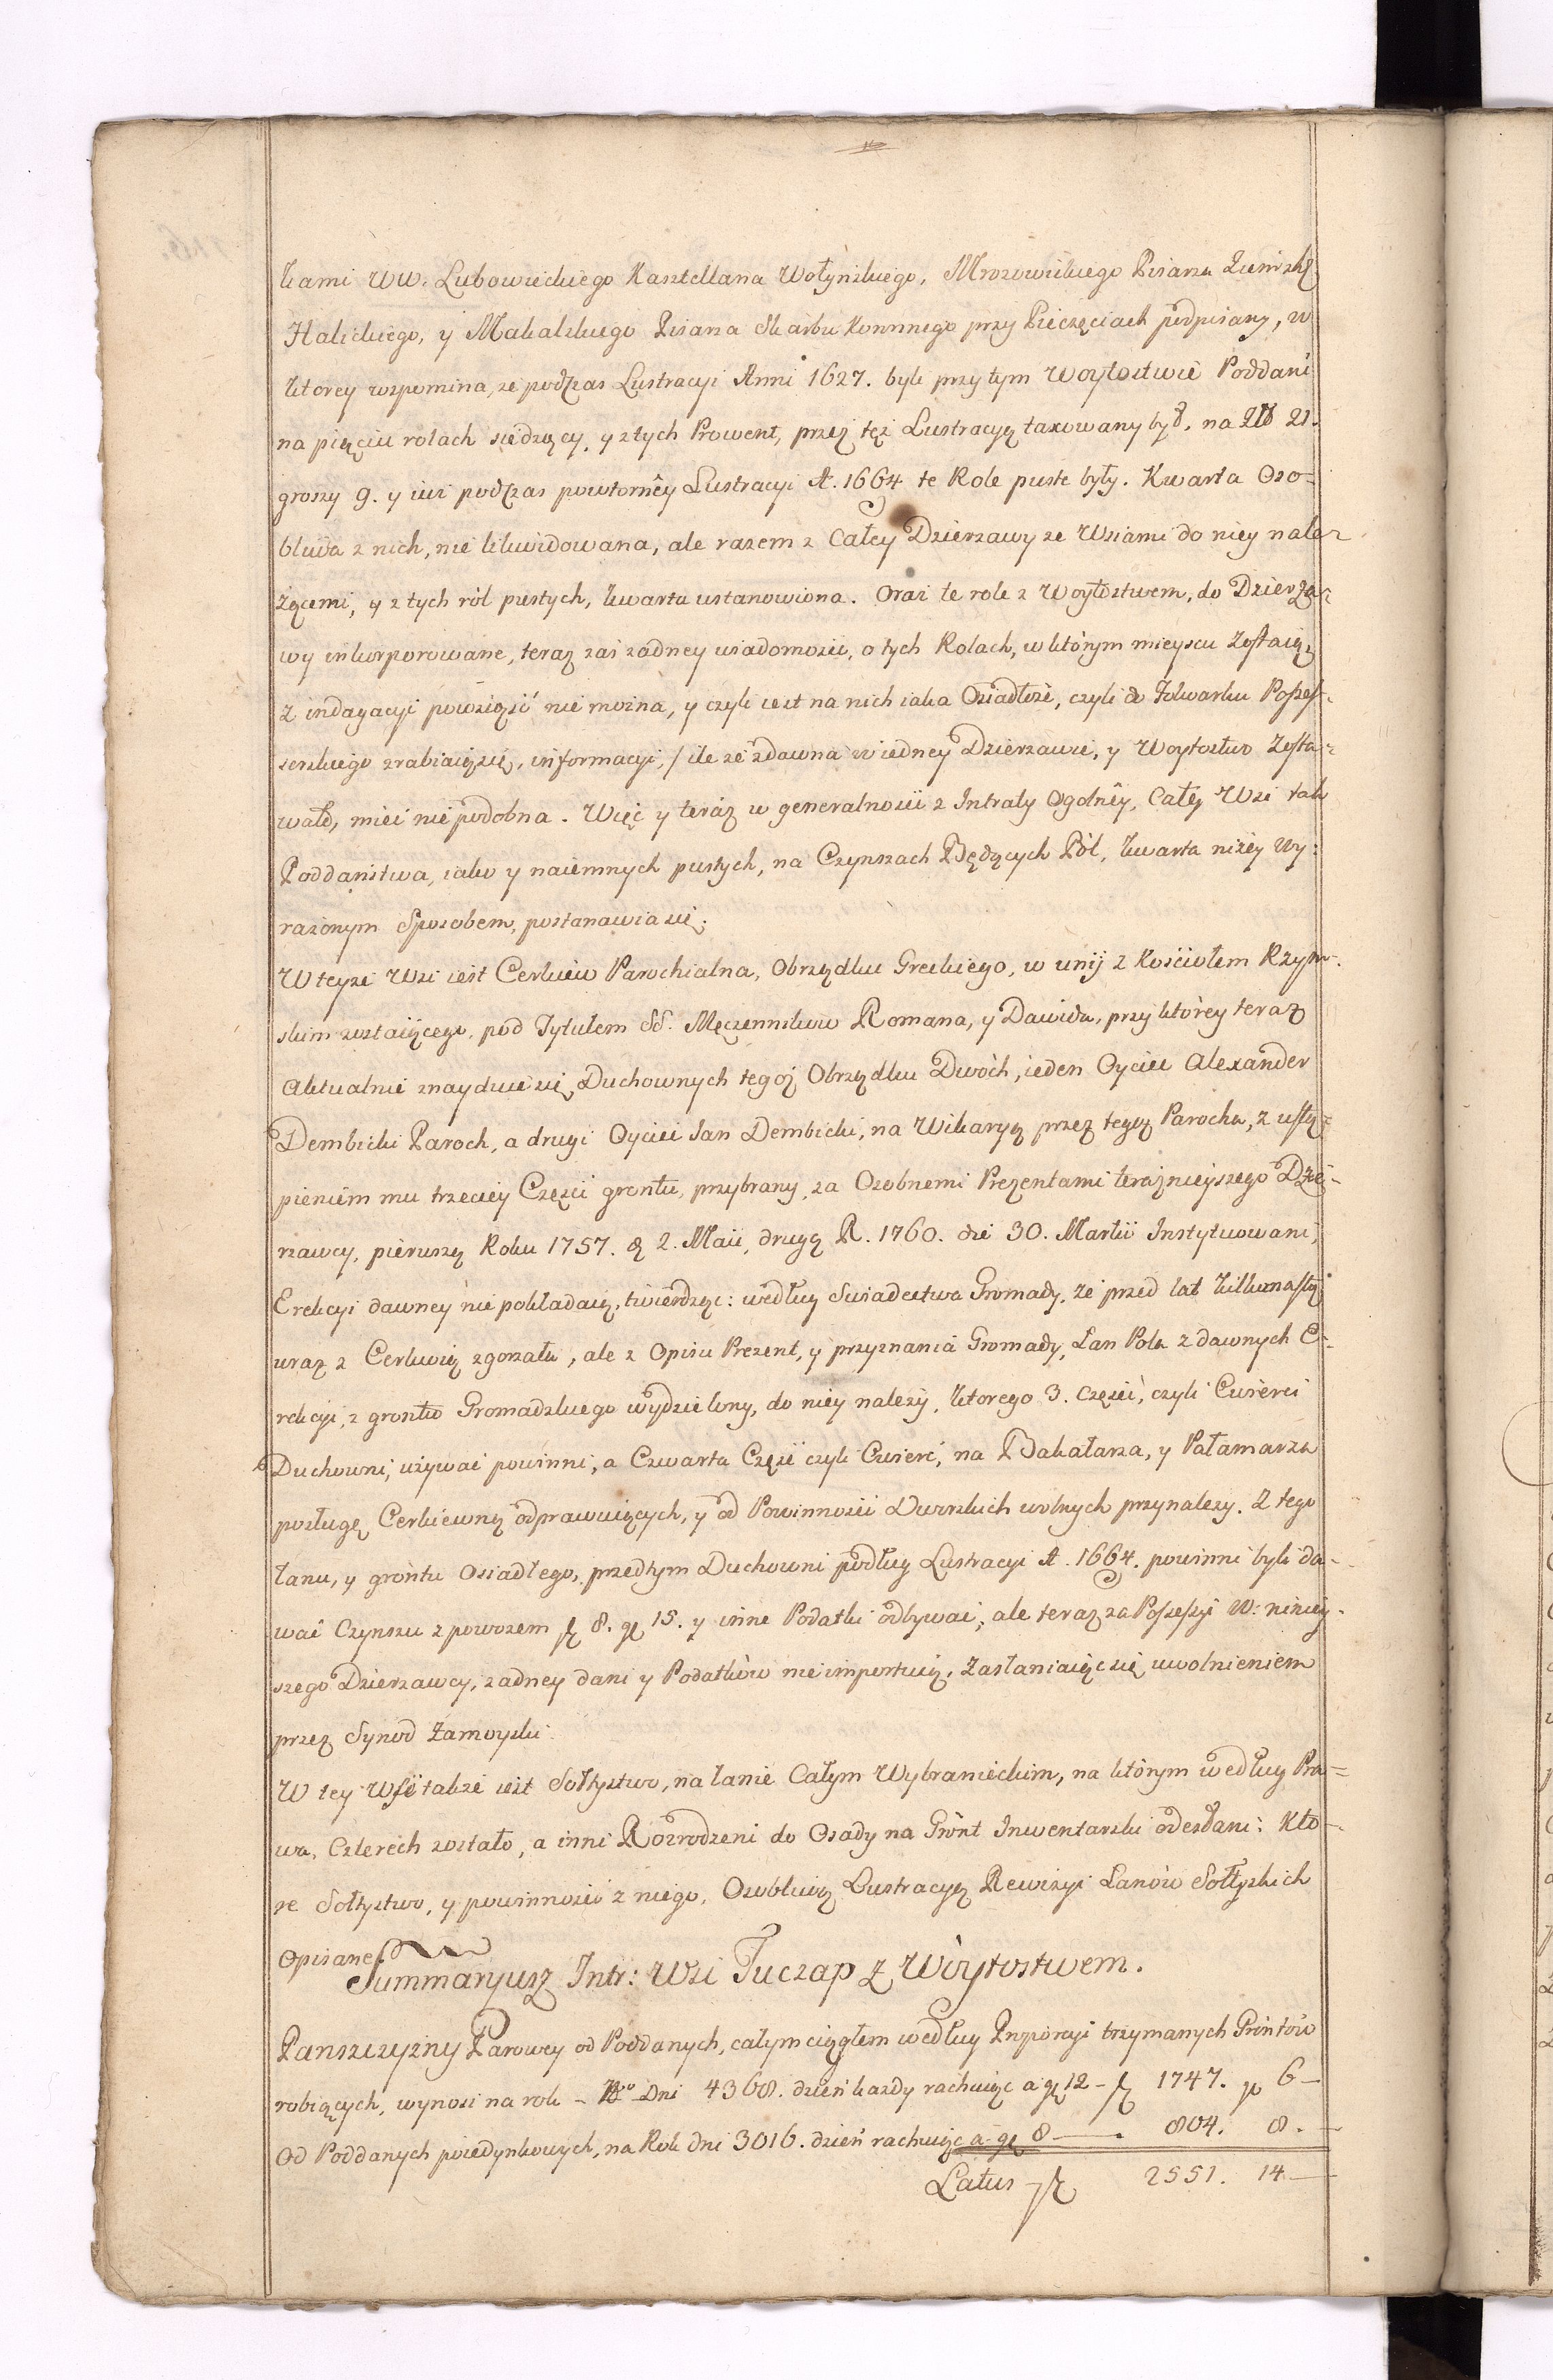 kami WW. Lubowieckiego Kasztellana Wołyńskiego, Mrozowickiego Pisarza Ziemsk:
Halickiego, y Makalskiego Pisarza Skarbu Koronnego przy Pieczęciach podpisany, w
ktorey wspomina, że podczas Lustracyi Anni 1627. byli przy tym Woytostwie Poddani
na pięciu rolach siedzący, y z tych Prowent, przez tęż Lustracyę taxowany był, na 21.
groszy 9. y iuż podczas powtorney Lustracyi A. 1664 te Role puste były. Kwarta Oso-
bliwa z nich, nie likwidowana, ale razem z Całey Dzierzawy ze Wsiami do niey nale-
żącemi, y z tych ról pustych, kwarta ustanowiona. Oraz te role z Woytostwem, do Dzierża-
wy inkorporowane, teraz zaś żadney wiadomości, o tych Rolach, w którym mieyscu Zostaią,
z indagacyi powziąść nie można, y czyli iest na nich iaka Osiadłość, czyli do Folwarku Posses-
sorskiego zrabiaią się, informacyi, / ile że zdawna w iedney Dzierzawie, y Woytostwo Zosta-
wało, mieć nie podobna. Więc y teraz w generalności z Intraty Ogolney, Całey Wsi tak
Poddaństwa, iako y naiemnych pustych, na Czynszach Będących Pól, kwarta niżey wy-
rażonym Sposobem, postanawia się.
W teyże Wsi iest Cerkiew Parochialna, Obrządku Greckiego, w unij z Kościołem Rzym-
skim zostaiącego, pod Tytułem SS. Męczenników Romana, y Dawida, przy którey teraz
aktualnie znayduie się Duchownych tegoż Obrządku Dwóch, ieden Oyciec Alexander
Dembicki Paroch, a drugi Oyciec Jan Dembicki, na Wikaryą przez tegoż Parocha, z ustą-
pieniem mu trzeciey Części grontu, przybrany, za Osobnemi Prezentami teraźnieyszego Dzie-
rzawcy, pierwszą Roku 1757. d. 2. Maii, drugą R. 1760. die 30. Martii Instytuowani,
Erekcyi dawney nie pokładaią, twierdząc: według Swiadectwa Gromady, że przed lat kilkunastą
wraz z Cerkwią zgorzała, ale z Opisu Prezent, y przyznania Gromady, Łan Pola z dawnych E-
rekcyi, z grontu Gromadzkiego wydzielony, do niey należy, ktorego 3. części, czyli Cwierci
Duchowni, używać powinni, a Czwarta Część czyli Cwierć, na Bakałarza, y Pałamarza
posługę Cerkiewną odprawuiących, y od Powinności Dworskich wolnych przynależy. Z tego
łanu, y grontu Osiadłego, przedtym Duchowni podług Lustracyi A. 1664. powinni byli da-
wać Czynszu z powozem zł 8. gr 15. y inne Podatki odbywać, ale teraz za Possessyi W: niniey-
szego Dzierzawcy, żadney dani y Podatków nie importuią, Zasłaniaiąc się uwolnieniem
przez Synod Zamoyski.
W tey Wsi także iest Sołtystwo, na łanie Całym Wybranieckim, na którym według Pra-
wa, Czterech zostało, a inni Rozrodzeni do Osady na Gront Inwentarski odesłani: Kto-
re Sołtystwo, y powinność z niego, Osobliwą Lustracyą Rewizyi Łanów Sołtyskich
Opisane.
Summaryusz Intr: Wsi Tuczap z Woytostwem.
Panszczyzny Parowey od Poddanych, całym ciągłem według Proporcyi trzymanych Grontów
robiących, wynosi na rok - Dni 4368. dzień każdy rachuiąc a gr 12 - zł 1747. gr 6 -
Od Poddanych poiedynkowych, na Rok dni 3016. dzień rachuiąc a gr 8 - 804. 8. -
Latus - zł 2551. 14 -